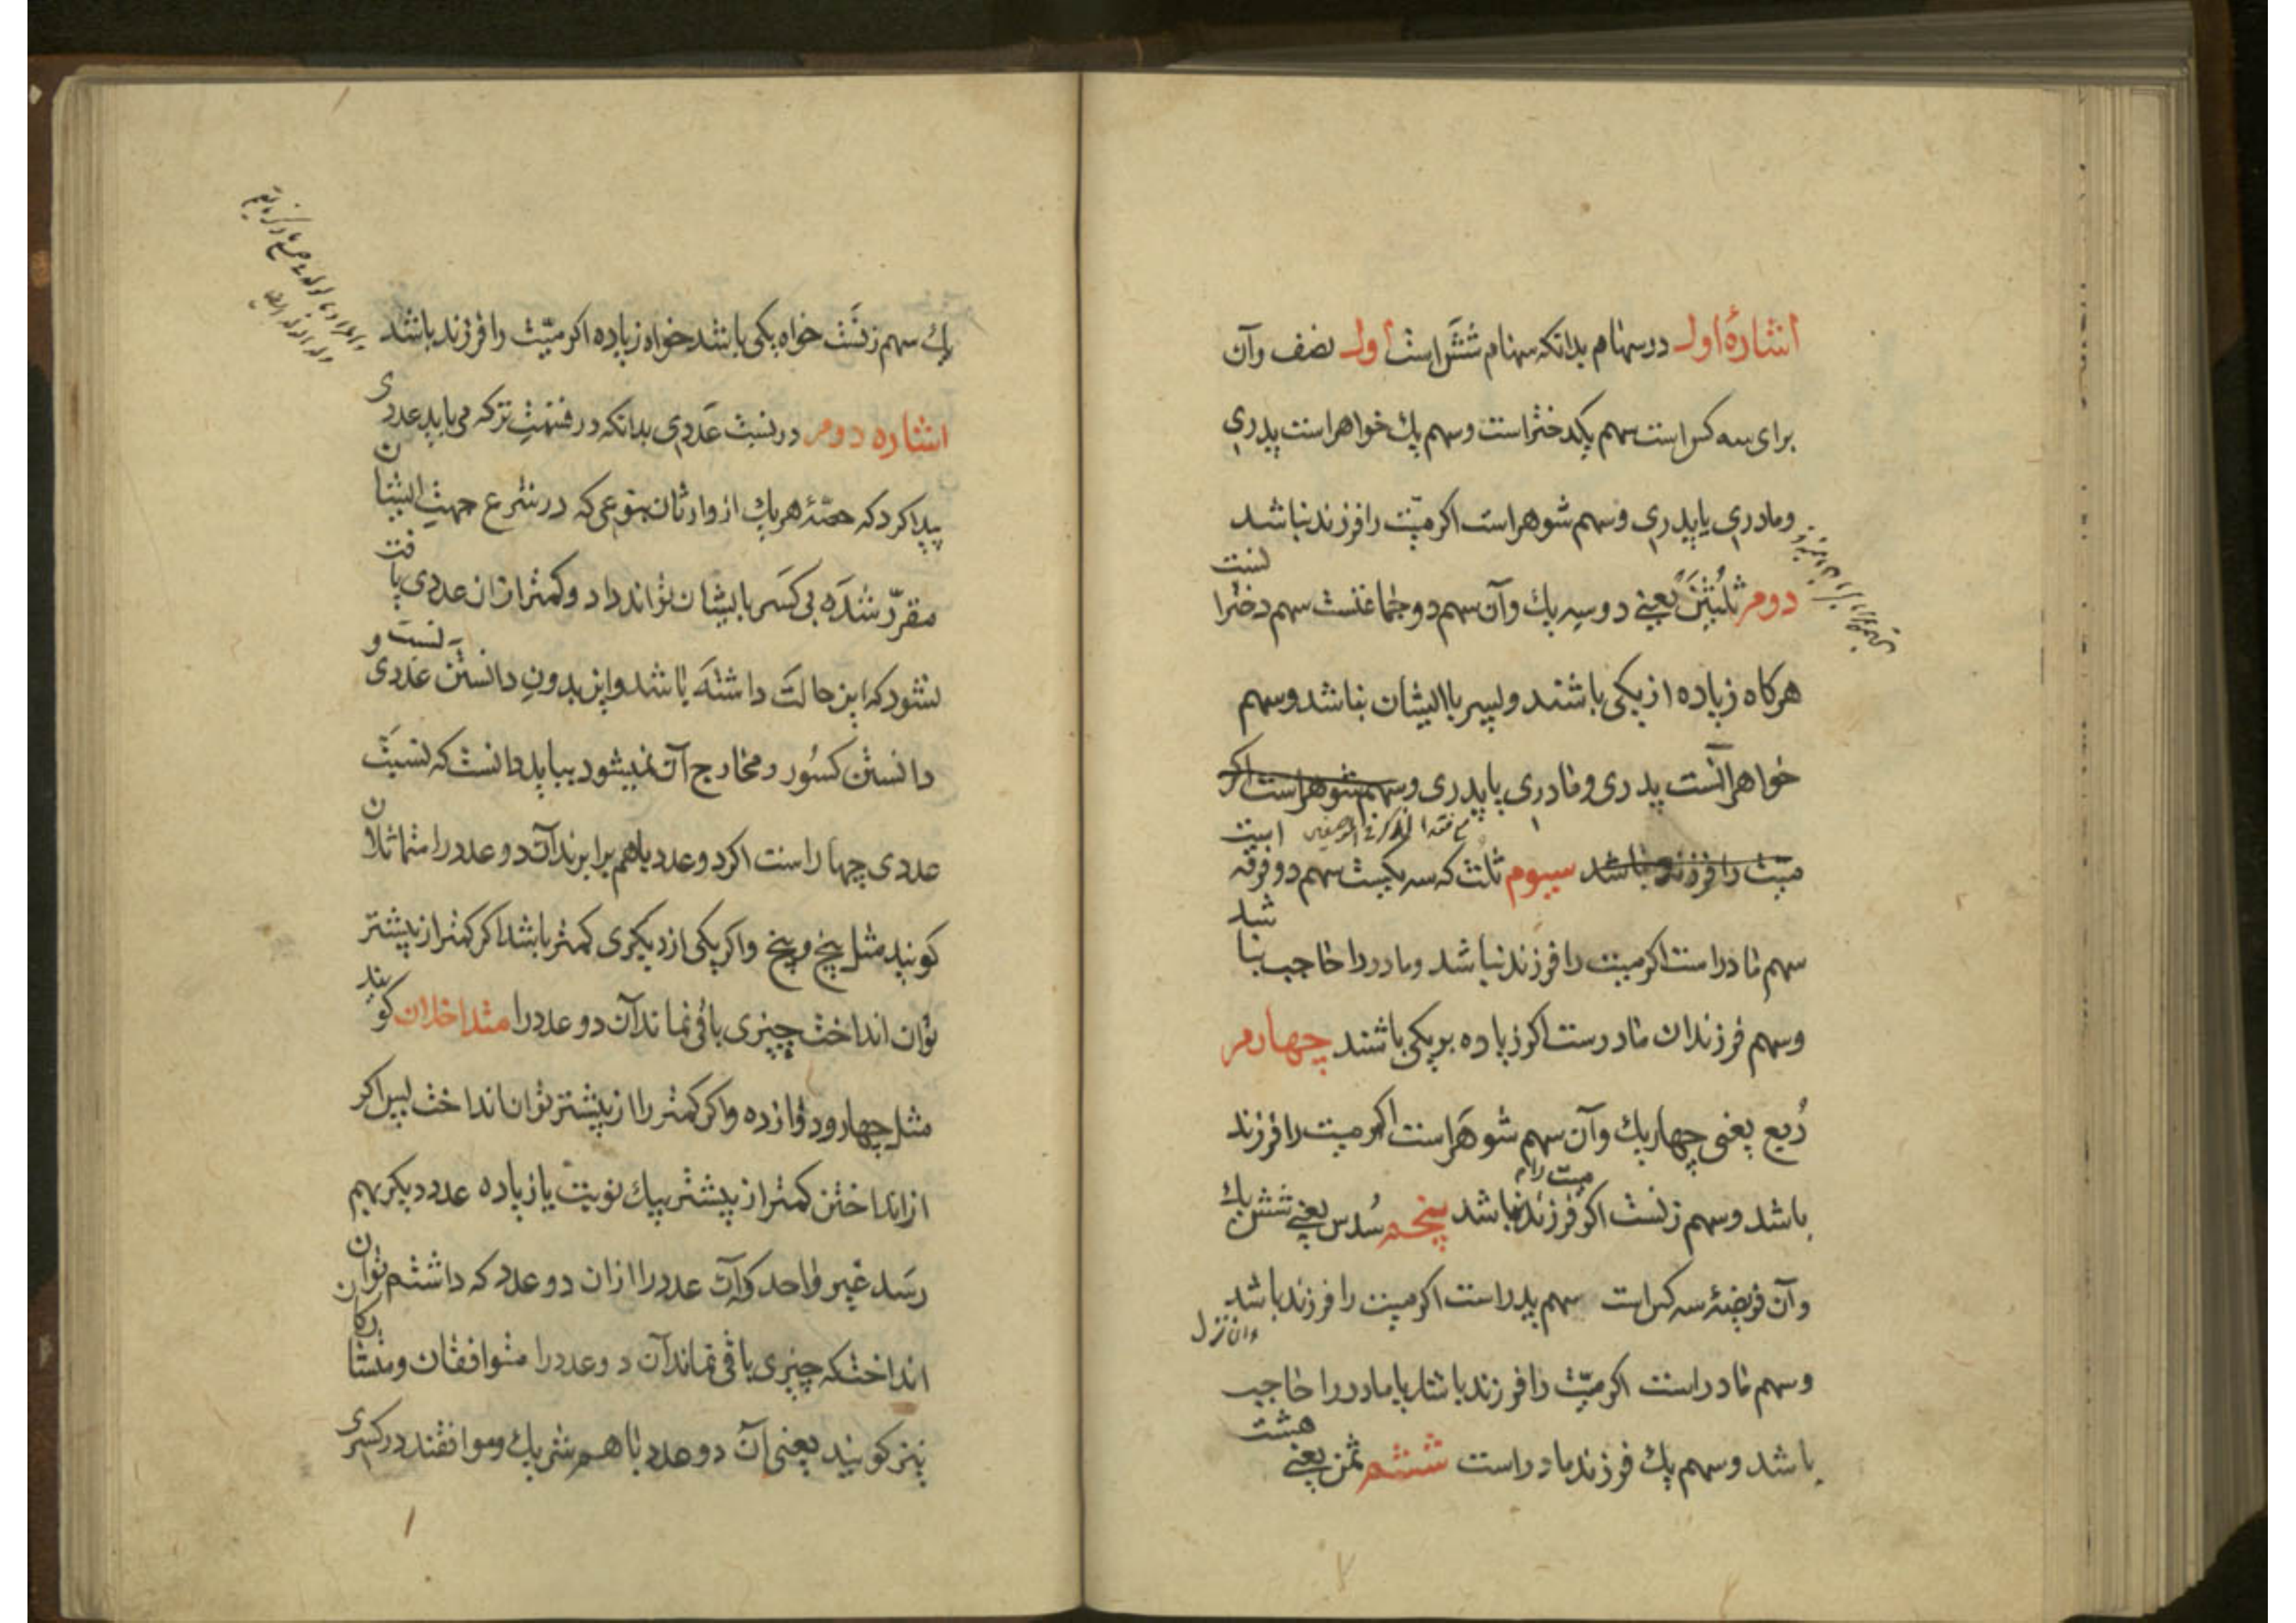 اشارهٔ اول در سهام بدانکه سهام شش است اول نصف وآن
برای سه کس است سهم یکدختر است وسهم یك خواهر است پدری
ومادری یا پدری وسهم شوهر است اکر میّت را فرزند نباشد
دوم ثلثین یعنی دو سه یك وآن سهم دو جماعتست سهم دختر انست
هرکاه زیاده از یکی باشند و پسر با ایشان نباشد وسهم
خواهر انست پدری ومادری یا پدری وسهم شوهر است اکر
میّت را فرزند نباشد سیوم ثلث که سه یکست سهم دو فرقه است
سهم مادر است اکر میت را فرزند نباشد ومادر را حاجب نباشد
وسهم فرزندان مادرست اکر زیاده بر یکی باشند چهارم
رُبع یعنی چهار یك وآن سهم شوهَر است اکر میت را فرزند
باشد وسهم زنست اکر میت را فرزند نباشد پنجم سُدس یعنی شش یك
وآن فریضهٔ سه کس است سهم پدر است اکر میت را فرزند باشد
وان نزل
وسهم مادر است اکر میّت را فرزند باشد یا مادر را حاجب
باشد وسهم یك فرزند مادر است ششم ثمن یعنی هشت
یك سهم زنَست خواه یکی باشد خواه زیاده اکر میّت را فرزند باشد
اشاره دوم در نسبت عَدَدی بدانکه در قسمتِ ترکه می باید عددی
پیدا کرد که حصّهٔ هر یك از وارثان بنوعی که در شرع جهتِ ایشان
مقرّر شدَه بی کسَر بایشان تواند داد وکمتر ازان عددی یافت
نشود که این حالتَ داشتهَ باشد واین بدونِ دانستن نسبت عددی و
دانستن کسُور ومخارج آن نمیشود بباید دانست که نسبَت
عددی چهار است اکر دو عدد باهم برابرند آن دو عدد را متماثلان
کویند مثل پنج وپنج واکر یکی از دیکری کمتر باشد اکر کمتر از بیشتر
توان انداخت چیزی باقی نماند آن دو عدد را متداخلان کویند
مثل چهار ودوازده واکر کمتر را از بیشتر نتوان انداخت پس اکر
از انداختن کمتر از بیشتر بیك نوبت یا زیاده عدد دیکر بهم
رسَد غیر واحد که آن عدد را ازان دو عدد که داشتم توان
انداخت که چیزی باقی نماند آن دو عدد را متوافقان ومتشارکان
نیز کویند یعنی آن دو عدد با هم شریك وموافقند در کسری